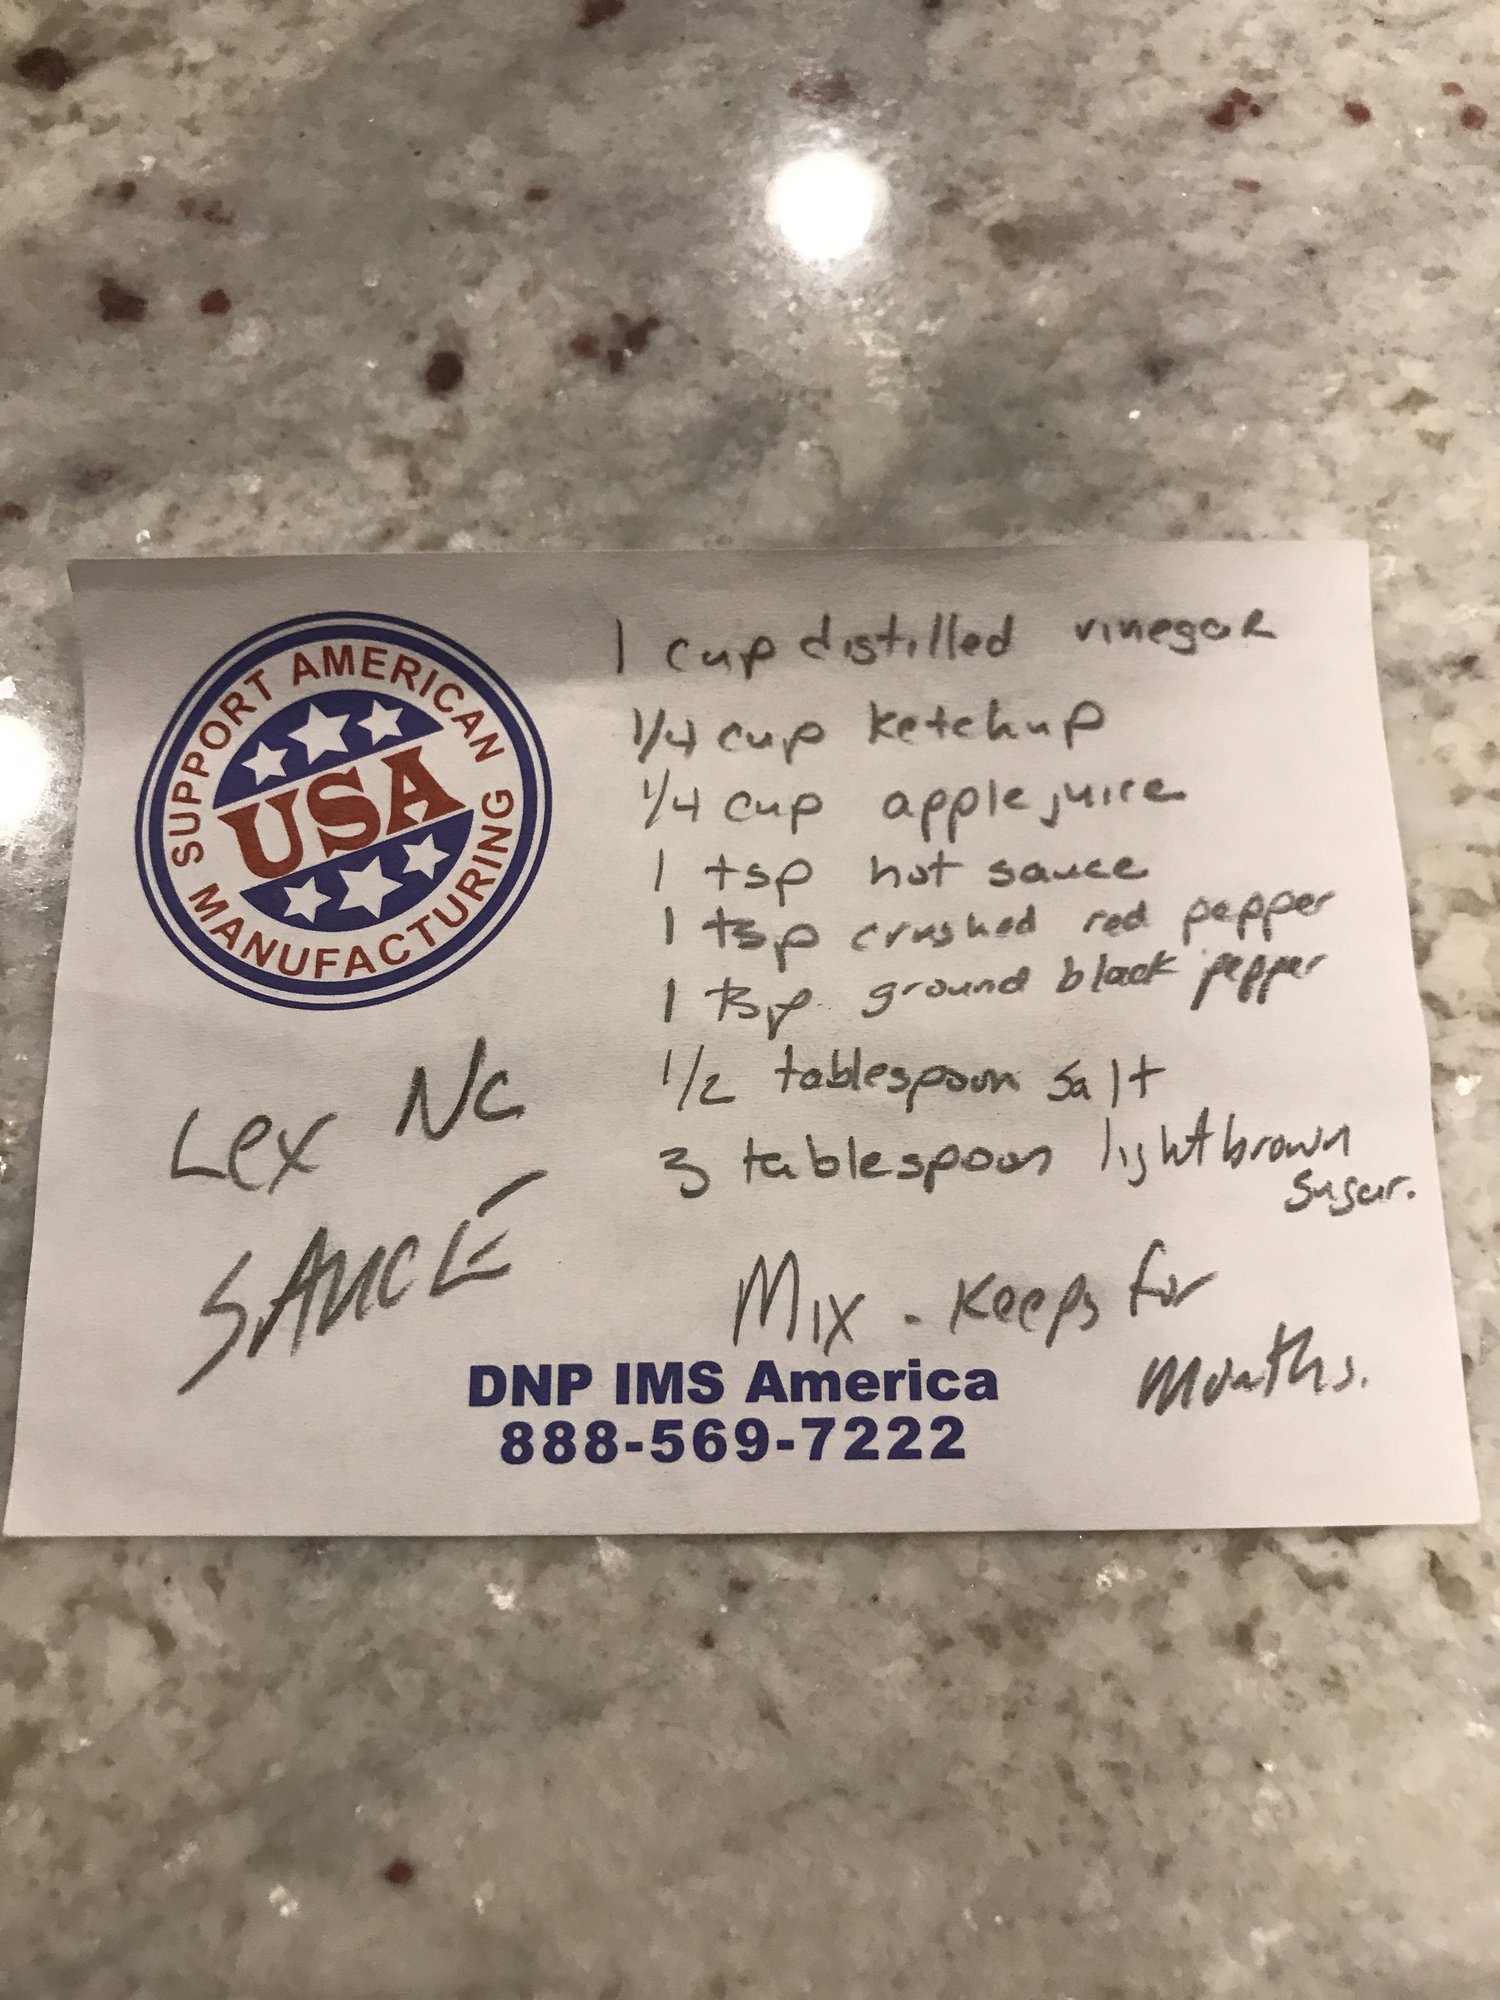 SUPPORT AMERICAN
USA
MANUFACTURING
Lex Nc
SAUCE
1 cup distilled vinegar
1/4 cup ketchup
1/4 cup apple juice
1 tsp hot sauce
1 tsp crushed red pepper
1 tsp ground black pepper
1/2 tablespoon salt
3 tablespoon light brown
sugar.
Mix. Keeps for
months.
DNP IMS America
888-569-7222